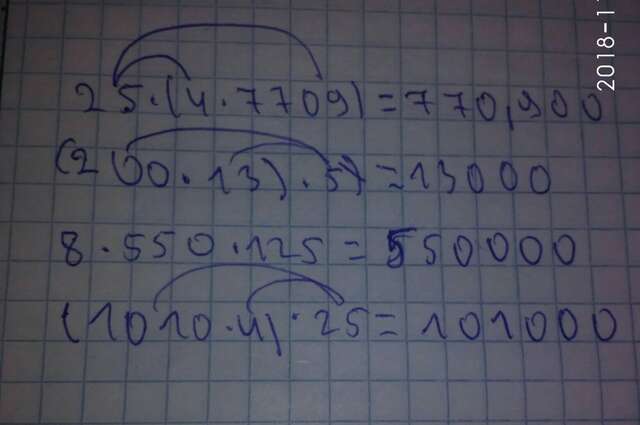 25·(4·7709)=770,900
(200·13)·5)=13000
8·550·125=550000
(1010·4)·25=101000
2018-1